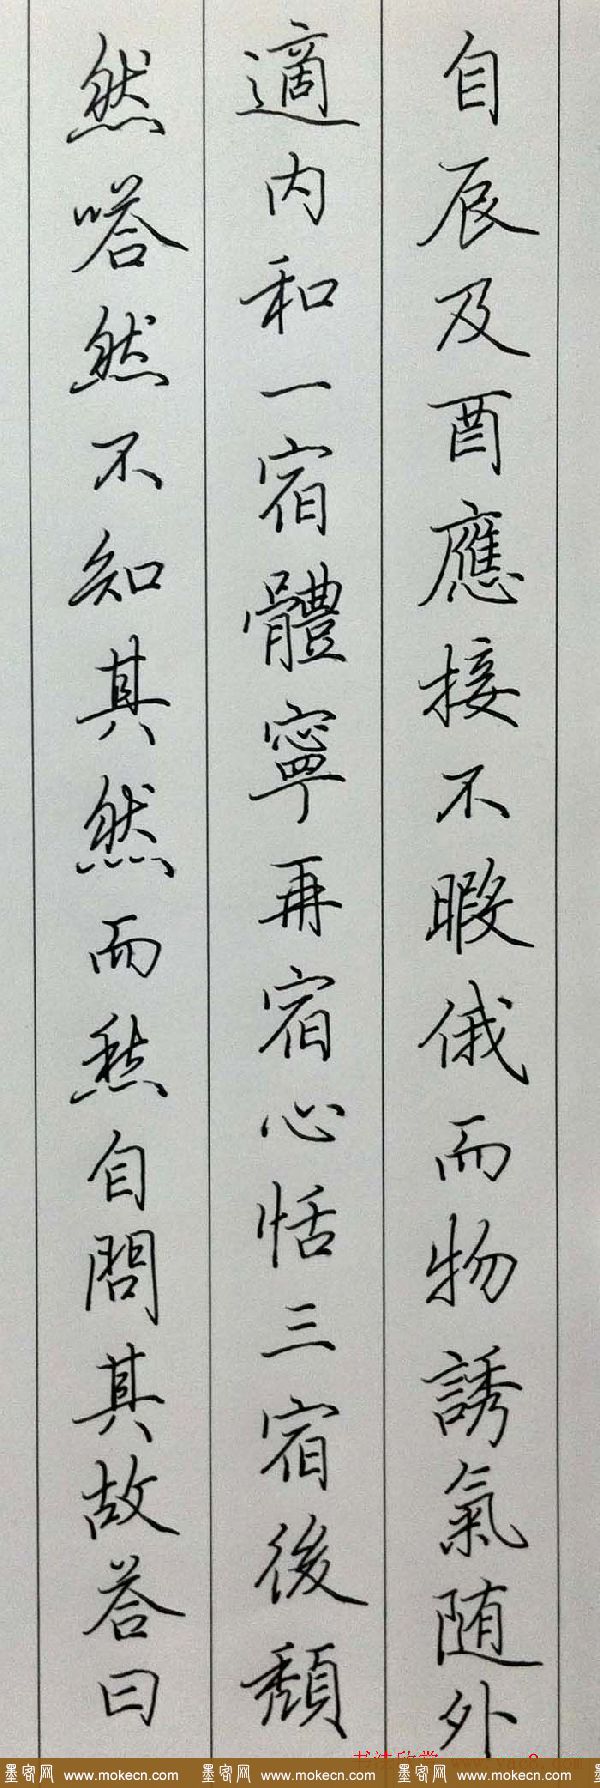 自辰及酉應接不暇俄而物誘氣随外
適内和一宿體寧再宿心恬三宿後頹
然嗒然不知其然而然自問其故答曰
墨客网 www.mokecn.com 墨客网 www.mokecn.com 墨客网 www.mokecn.com